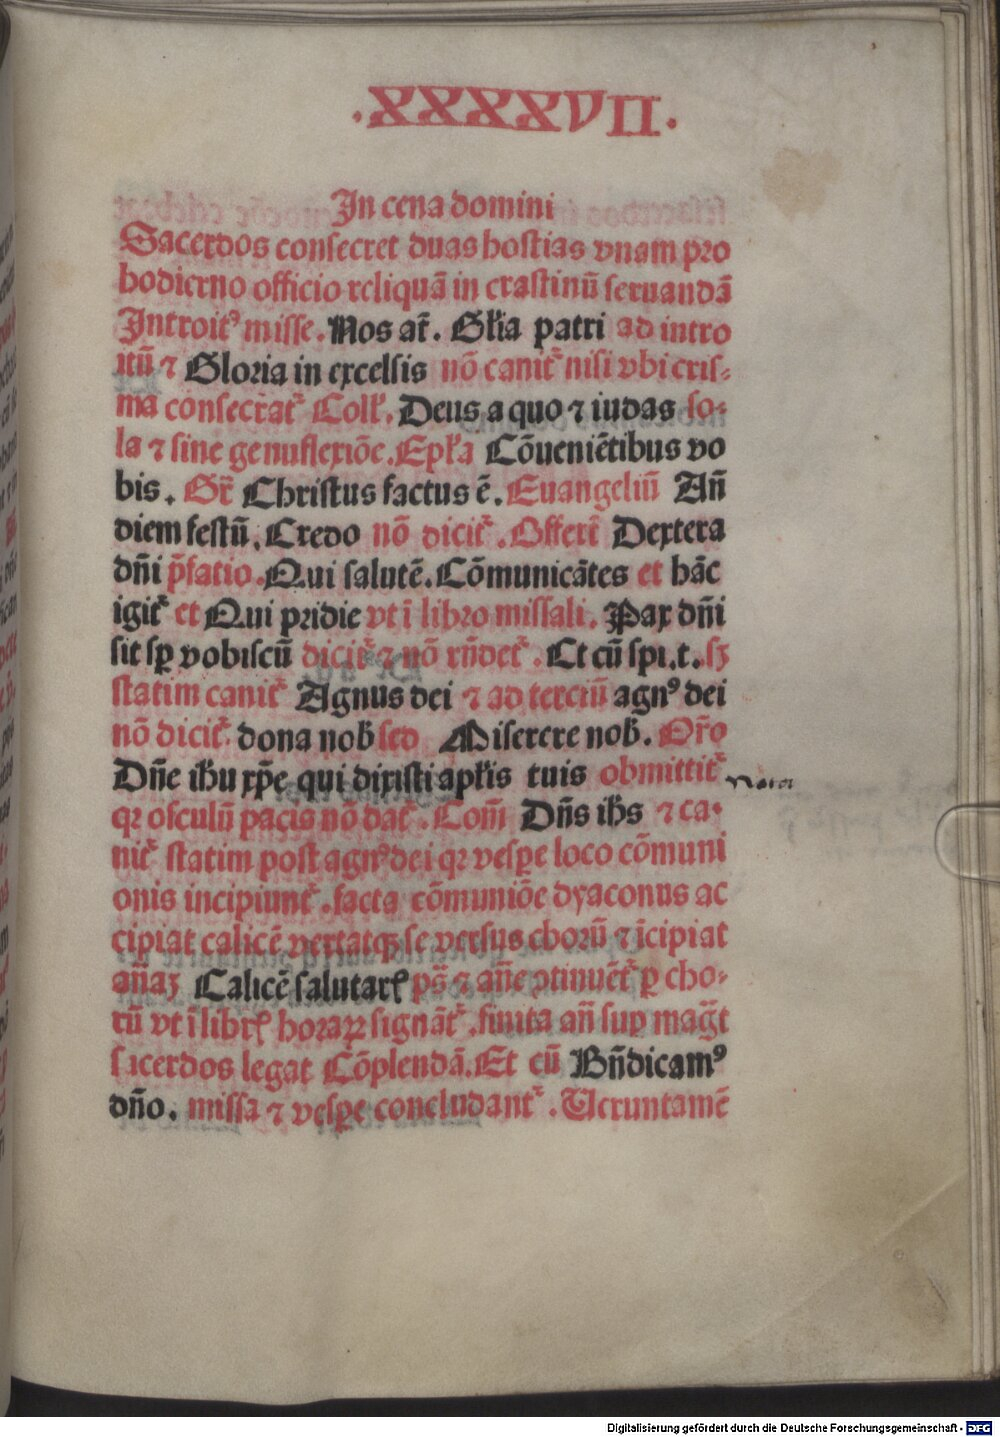 .XXXXVII.
In cena domini
Sacerdos consecret duas hostias vnam pro
hodierno officio reliquā in crastinū seruandā
Introitꝰ misse. Nos at̄. Gl̓ia patri ad intro
itū ⁊ Gloria in excelsis nō canit᷑ nisi vbi cris⸗
ma consecrat᷑ Coll̓. Deus a quo ⁊ iudas so⸗
la ⁊ sine genuflexiōe. Epl̓a Cōueniētibus vo
bis. Gr̄ Christus factus ē. Euangeliū An̄
diem festū. Credo nō dicit᷑. Offert̄ Dextera
dn̄i p̄fatio. Qui salutē. Cōmunicātes et hāc
igit᷑ et Qui pridie vt ī libro missali. Pax dn̄i
sit sꝑ vobiscū dicit᷑ ⁊ nō rn̄det᷑. Et cū spi.t. sꝫ
statim canit᷑ Agnus dei ⁊ ad terciū agnꝰ dei
nō dicit᷑. dona nob̓ sed Miserere nob̓. Or̄o
Dn̄e ih̓u xp̄e qui dixisti apl̓is tuis obmittit᷑
Nota
qr osculū pacis nō dat᷑. Com̄ Dn̄s ih̓s ⁊ ca⸗
nit᷑ statim post agnꝰ dei qr vespe loco cōmuni
onis incipiunt᷑. facta cōmuniōe dyaconus ac
cipiat calicē vertatqꝫ se versus chorū ⁊ īcipiat
an̄aꝫ Calicē salutarꝭ ps̄ ⁊ an̄e ↄtinuēt᷑ ꝑ cho⸗
rū vt ī librꝭ horaꝝ signāt᷑. finita an̄ suꝑ maḡt
sacerdos legat Cōplendā. Et cū Bn̄dicamꝰ
dn̄o. missa ⁊ vespe concludant᷑. Veruntamē
Digitalisierung gefördert durch die Deutsche Forschungsgemeinschaft - DFG